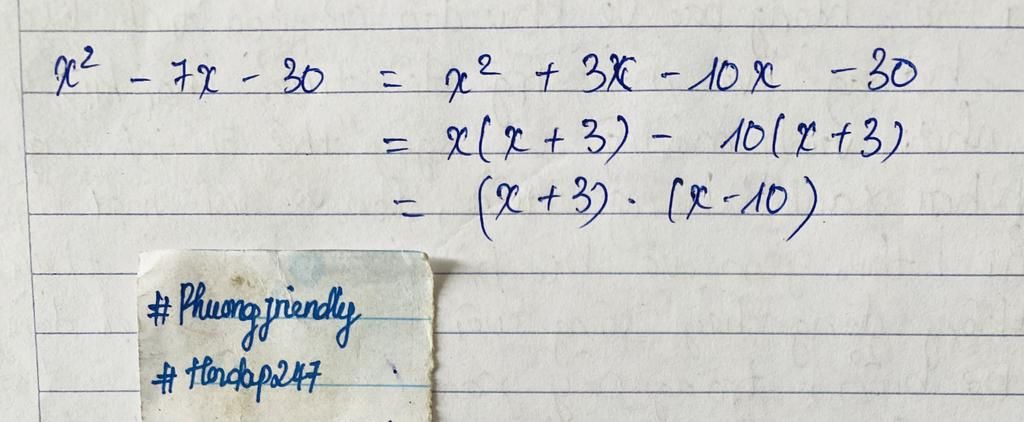 x² - 7x - 30 = x² + 3x - 10x - 30
= x(x + 3) - 10(x + 3)
= (x + 3) . (x - 10)
# Phuongfriendly
# Hoidap247